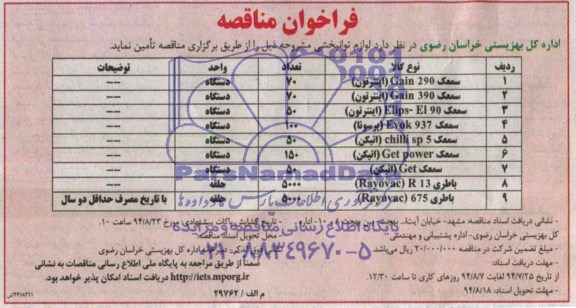 فراخوان مناقصه
اداره کل بهزیستی خراسان رضوی در نظر دارد لوازم توانبخشی مشروحه ذیل را از طریق برگزاری مناقصه تأمین نماید.
ردیف نوع کالا تعداد واحد توضیحات
۱ سمعک Gain 290 (اینترتون) ۷۰ دستگاه ---
۲ سمعک Gain 390 (اینترتون) ۷۰ دستگاه ---
۳ سمعک Elips- El 90 (اینترتون) ۵۰ دستگاه ---
۴ سمعک Evok 937 (پرسونا) ۱۰۰ دستگاه ---
۵ سمعک chilli sp 5 (اتیکن) ۵۰ دستگاه ---
۶ سمعک Get power (اتیکن) ۱۵۰ دستگاه ---
۷ سمعک Get (اتیکن) ۵۰ دستگاه ---
۸ باطری Rayovac) R 13) ۵۰۰۰ حلقه ---
۹ باطری Rayovac) 675) ۵۰۰۰ حلقه با تاریخ مصرف حداقل دو سال
- نشانی دریافت اسناد مناقصه: مشهد- خیابان اداره
کل بهزیستی خراسان رضوی- اداره پشتیبانی و مهندسی
- مبلغ تضمین شرکت در مناقصه ۲۰/۰۰۰/۰۰۰ ریال می‌باشد.
- مهلت دریافت اسناد:
از تاریخ ۹۴/۷/۲۵ لغایت ۹۴/۸/۷ روزهای کاری تا ساعت ۱۲/۳۰
- مهلت تحویل اسناد: ۹۴/۸/۱۸
- تاریخ گشایش پاکات پیشنهادی: مورخ ۹۴/۸/۲۳ ساعت ۱۰.
- محل تحویل اسناد مناقصه:
کل بهزیستی خراسان رضوی
ضمناً از طریق مراجعه به پایگاه ملی اطلاع رسانی مناقصات به نشانی
http://iets.mporg.ir دریافت اسناد امکان پذیر خواهد بود.
م الف / ۲۹۷۶۲
۹۴۱۸۳۱۱
ParsNamadData
پایگاه اطلاع رسانی مناقصه و مزایده
۰۲۱-۸۸۳۴۹۶۷۰-۵